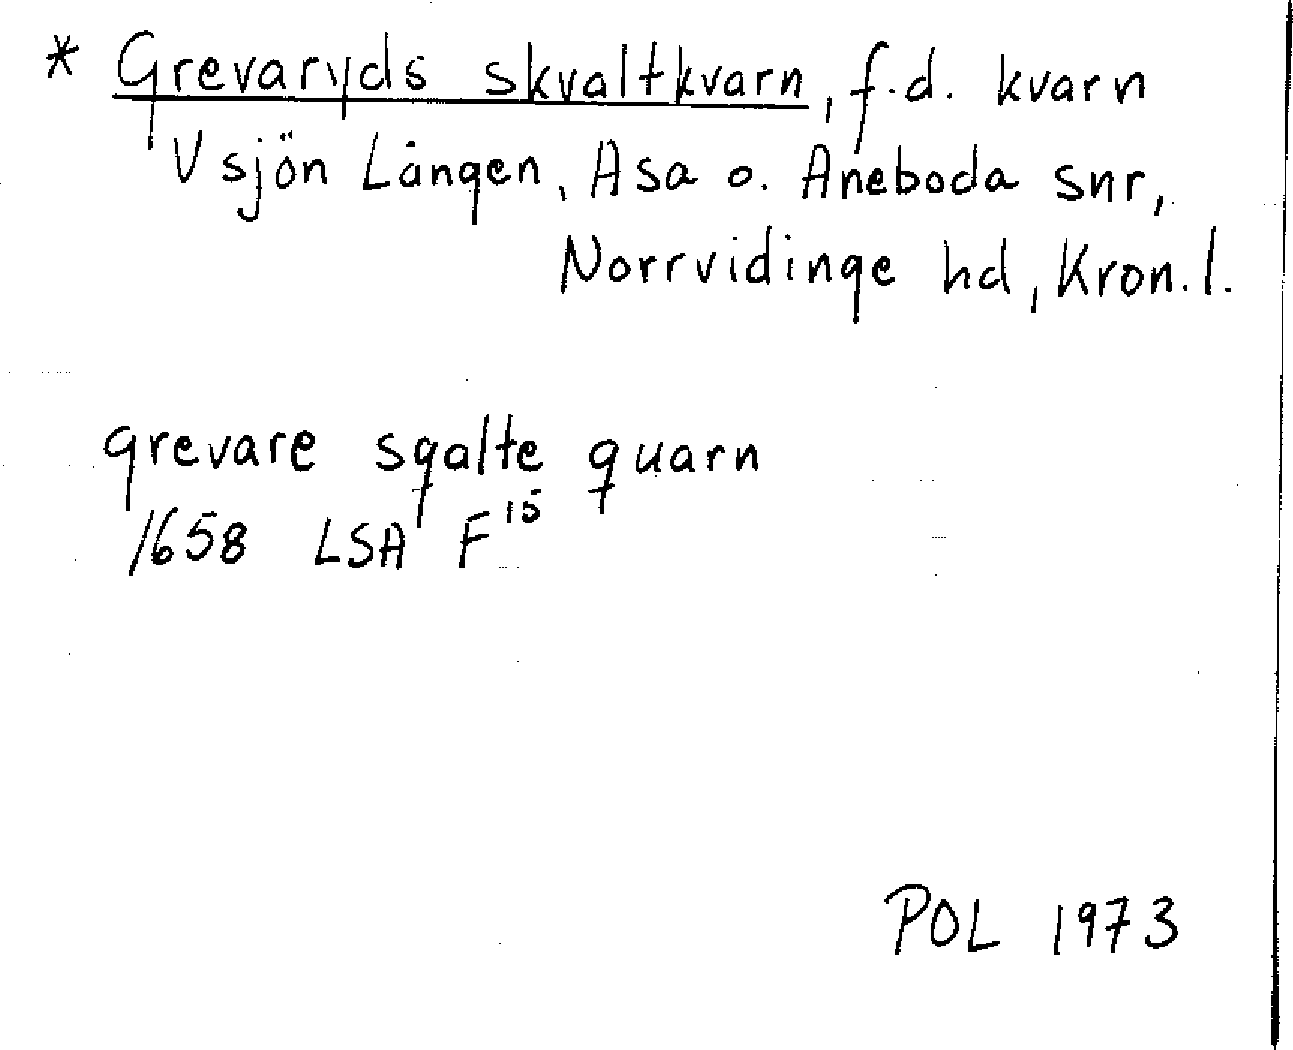 * Grevaryds skvaltkvarn, f.d. kvarn
V sjön Lången, Asa o. Aneboda snr,
Norrvidinge hd, Kron. l.
grevare sqalte quarn
1658 LSA F15
POL 1973